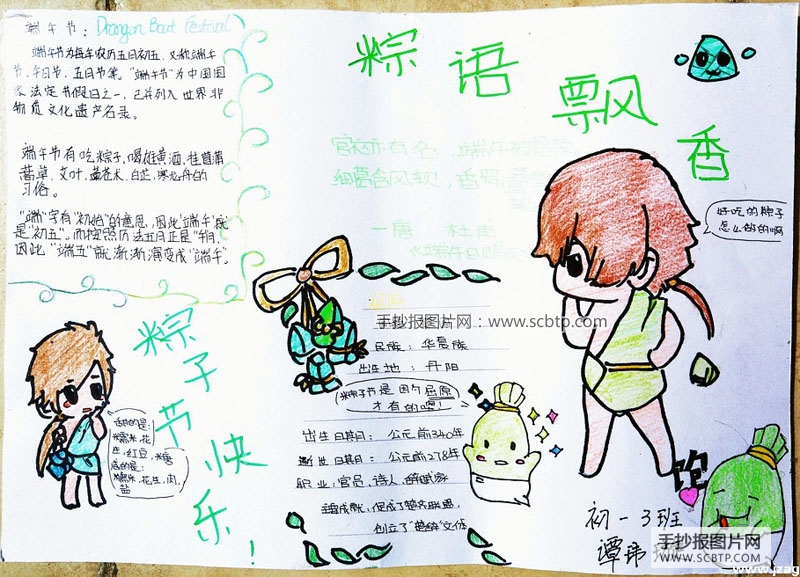 端午节：Dragon Boat Festival
端午节为每年农历五月初五，又称端午
节，午日节，五月节等。"端午节"为中国国
家法定节假日之一，已并列入世界非
物质文化遗产名录。
端午节有吃粽子，喝雄黄酒，挂菖蒲
艾叶，
习俗。
"端"字有"初始"的意思，因此"端午"就
是"初五"。而按照历法五月正是"午"月，
因此"端五"就渐渐演变成"端午"。
粽语飘香
官衣亦有名，端午被恩荣。
细葛含风软，香罗
一唐 杜甫
《端午日赐衣》
好吃的粽子
怎么做的啊
手抄报图片网：www.scbtp.com
民族：华夏族
出生地：丹阳
粽子节是因为屈原
才有的嘿！
出生日期：公元前340年
逝世日期：公元前278年
职业：官员、诗人、
主要成就：促成了楚齐联盟，
创立了"楚辞"文体
粽子节快乐！
甜的是：
糯米，花
生，红豆，
咸的是：
糯米，花生，肉，
盐
饱
初一3班
谭玮
手抄报图片网
WWW.SCBTP.COM
www.jzag